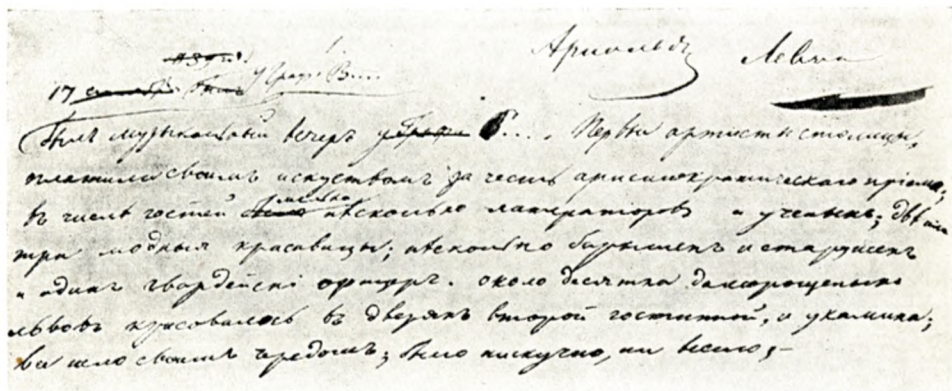 Арнольдъ Левинъ
1839
17 сентября былъ У Графа В....
Былъ музыкальный вечеръ у Графа В.... Первые артисты столицы
платили своимъ искуствомъ за честь аристократическаго пріема;
въ числѣ гостей мелькало нѣсколько литераторовъ и ученыхъ; двѣ или
три модныя красавицы; нѣсколько барышень и старушекъ
и одинъ гвардейскій офицеръ. около десятка доморощеныхъ
львовъ красовалось въ дверяхъ второй гостинной, и у камина;
все шло своимъ чередомъ; было ни скучно, ни весело;—